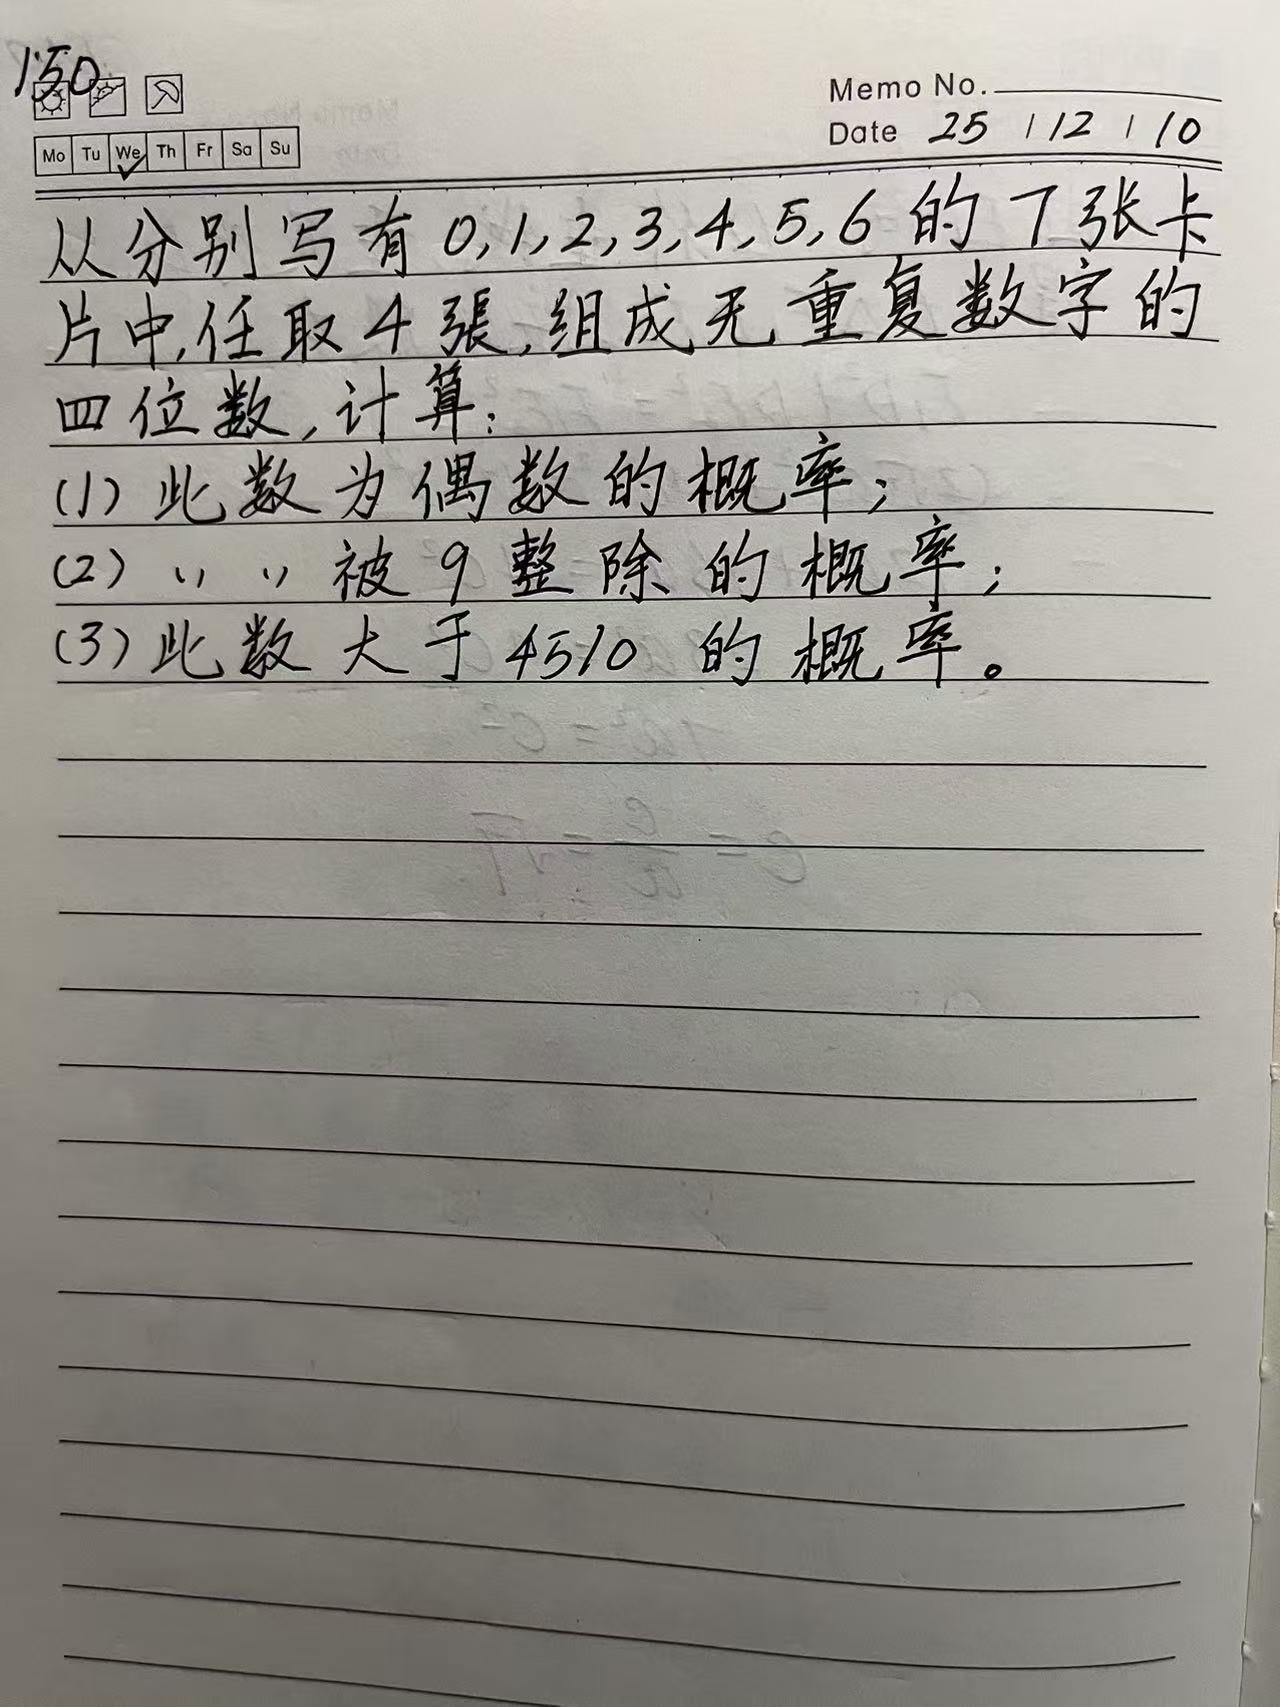 150
Memo No.
Date 25 / 12 / 10
Mo Tu We Th Fr Sa Su
从分别写有 0,1,2,3,4,5,6 的 7 张卡
片中,任取4張,组成无重复数字的
四位数,计算:
(1) 此数为偶数的概率;
(2) 〃 〃 被9整除的概率;
(3) 此数大于4510 的概率。